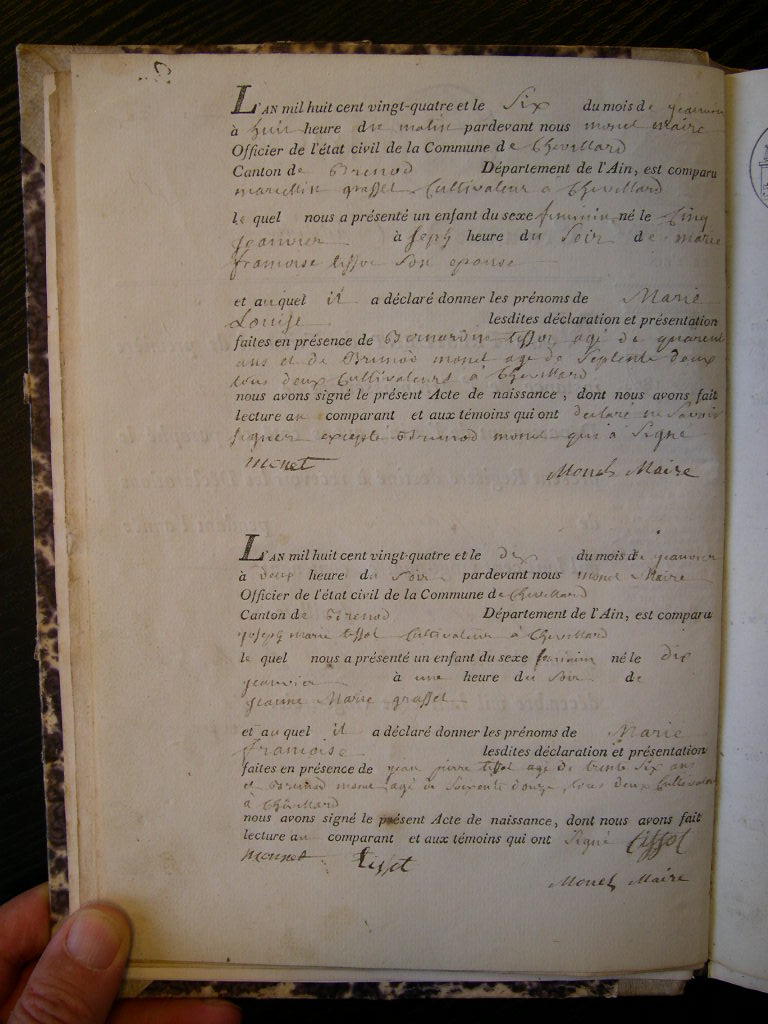 L'AN mil huit cent vingt-quatre et le Six du mois de jeanvier
à huit heure du matin pardevant nous monet maire
Officier de l'état civil de la Commune de Chevillard
Canton de Brenod Département de l'Ain, est comparu
marcellin grasset Cultivateur à Chevillard
le quel nous a présenté un enfant du sexe feminin né le Cinq
jeanvier à Sept heure du Soir de marie
francoise tissot Son epouse
et auquel il a déclaré donner les prénoms de Marie
Louise lesdites déclaration et présentation
faites en présence de Bernardin tissot agé de quarente
ans et de Brunod monet agé de Septente deux
tous deux Cultivateurs à Chevillard
nous avons signé le présent Acte de naissance, dont nous avons fait
lecture au comparant et aux témoins qui ont declaré ne Savoir
Signer excepté Brunod monet qui à Signé
monet Monet Maire
L'AN mil huit cent vingt-quatre et le dix du mois de jeanvier
à deux heure du Soir pardevant nous monet Maire
Officier de l'état civil de la Commune de Chevillard
Canton de Brenod Département de l'Ain, est comparu
joseph marie tissot Cultivateur à Chevillard
le quel nous a présenté un enfant du sexe feminin né le dix
jeanvier à une heure du Soir de
jeanne Marie grasset
et auquel il a déclaré donner les prénoms de Marie
francoise lesdites déclaration et présentation
faites en présence de jean pierre tissot agé de trente Six ans
et Brunod monet agé de Soixente douze, tous deux Cultivateur
à Chevillard
nous avons signé le présent Acte de naissance, dont nous avons fait
lecture au comparant et aux témoins qui ont Signé tissot
monnet tissot
Monet Maire